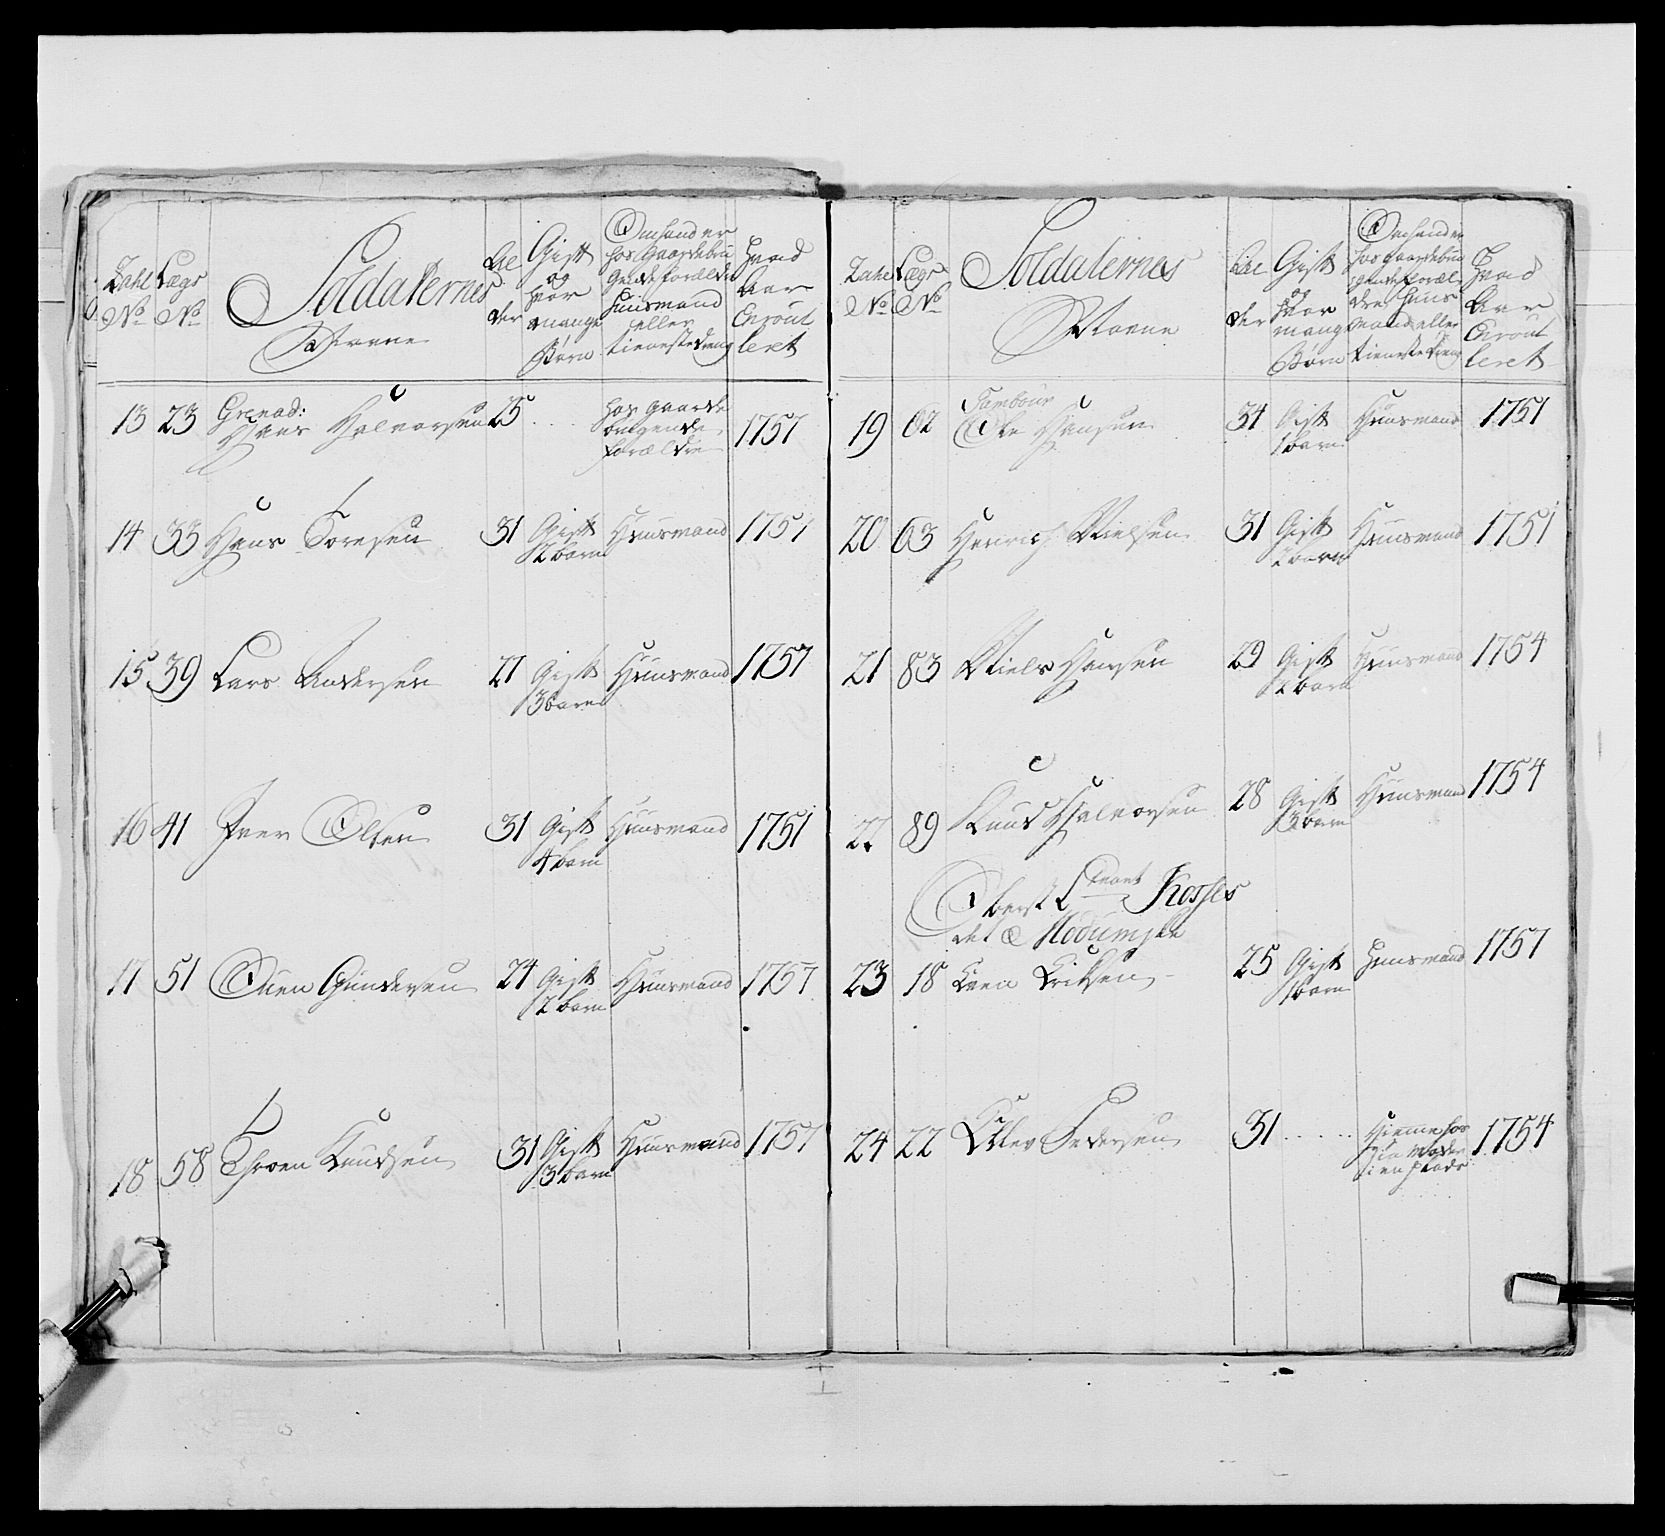 Zahl No
Lægs No
Soldaternes Navne
Alder
Gift og hvor mange Børn
Om hand er hos Gaardebrugende forældre Huusmand eller tienestedreng
Hvad Aar Enroulleret
13 23 Grenad: Halvorsen 25 hos gaarde brugende forældre 1757
14 33 Hans Toresen 31 Gift 2 børn Huusmand 1751
15 39 Lars Andersen 27 Gift 3 børn Huusmand 1757
16 41 Iver Olsen 31 Gift 4 børn Huusmand 1751
17 51 Gundersen 24 Gift 2 børn Huusmand 1757
18 58 Knudsen 31 Gift 3 børn Huusmand 1757
Zahl No
Lægs No
Soldaternes Navne
Alder
Gift og hvor mang Børn
Om hand er hos Gaardebrugende forældre Huusmand eller tienestedreng
Hvad Aar Enroulleret
19 62 Tambour Ole Hansen 34 Gift 1 barn Huusmand 1751
20 63 Henrich Nielsen 31 Gift 2 børn Huusmand 1751
21 83 Niels Hansen 29 Gift 2 børn Huusmand 1754
22 89 Knud Halvorsen 28 Gift 3 børn Huusmand 1754
Oberst
det Modumske
23 18 Eriksen 25 Gift 1 barn Huusmand 1757
24 22 Pedersen 31 Hiemme hos sin Moder 1754